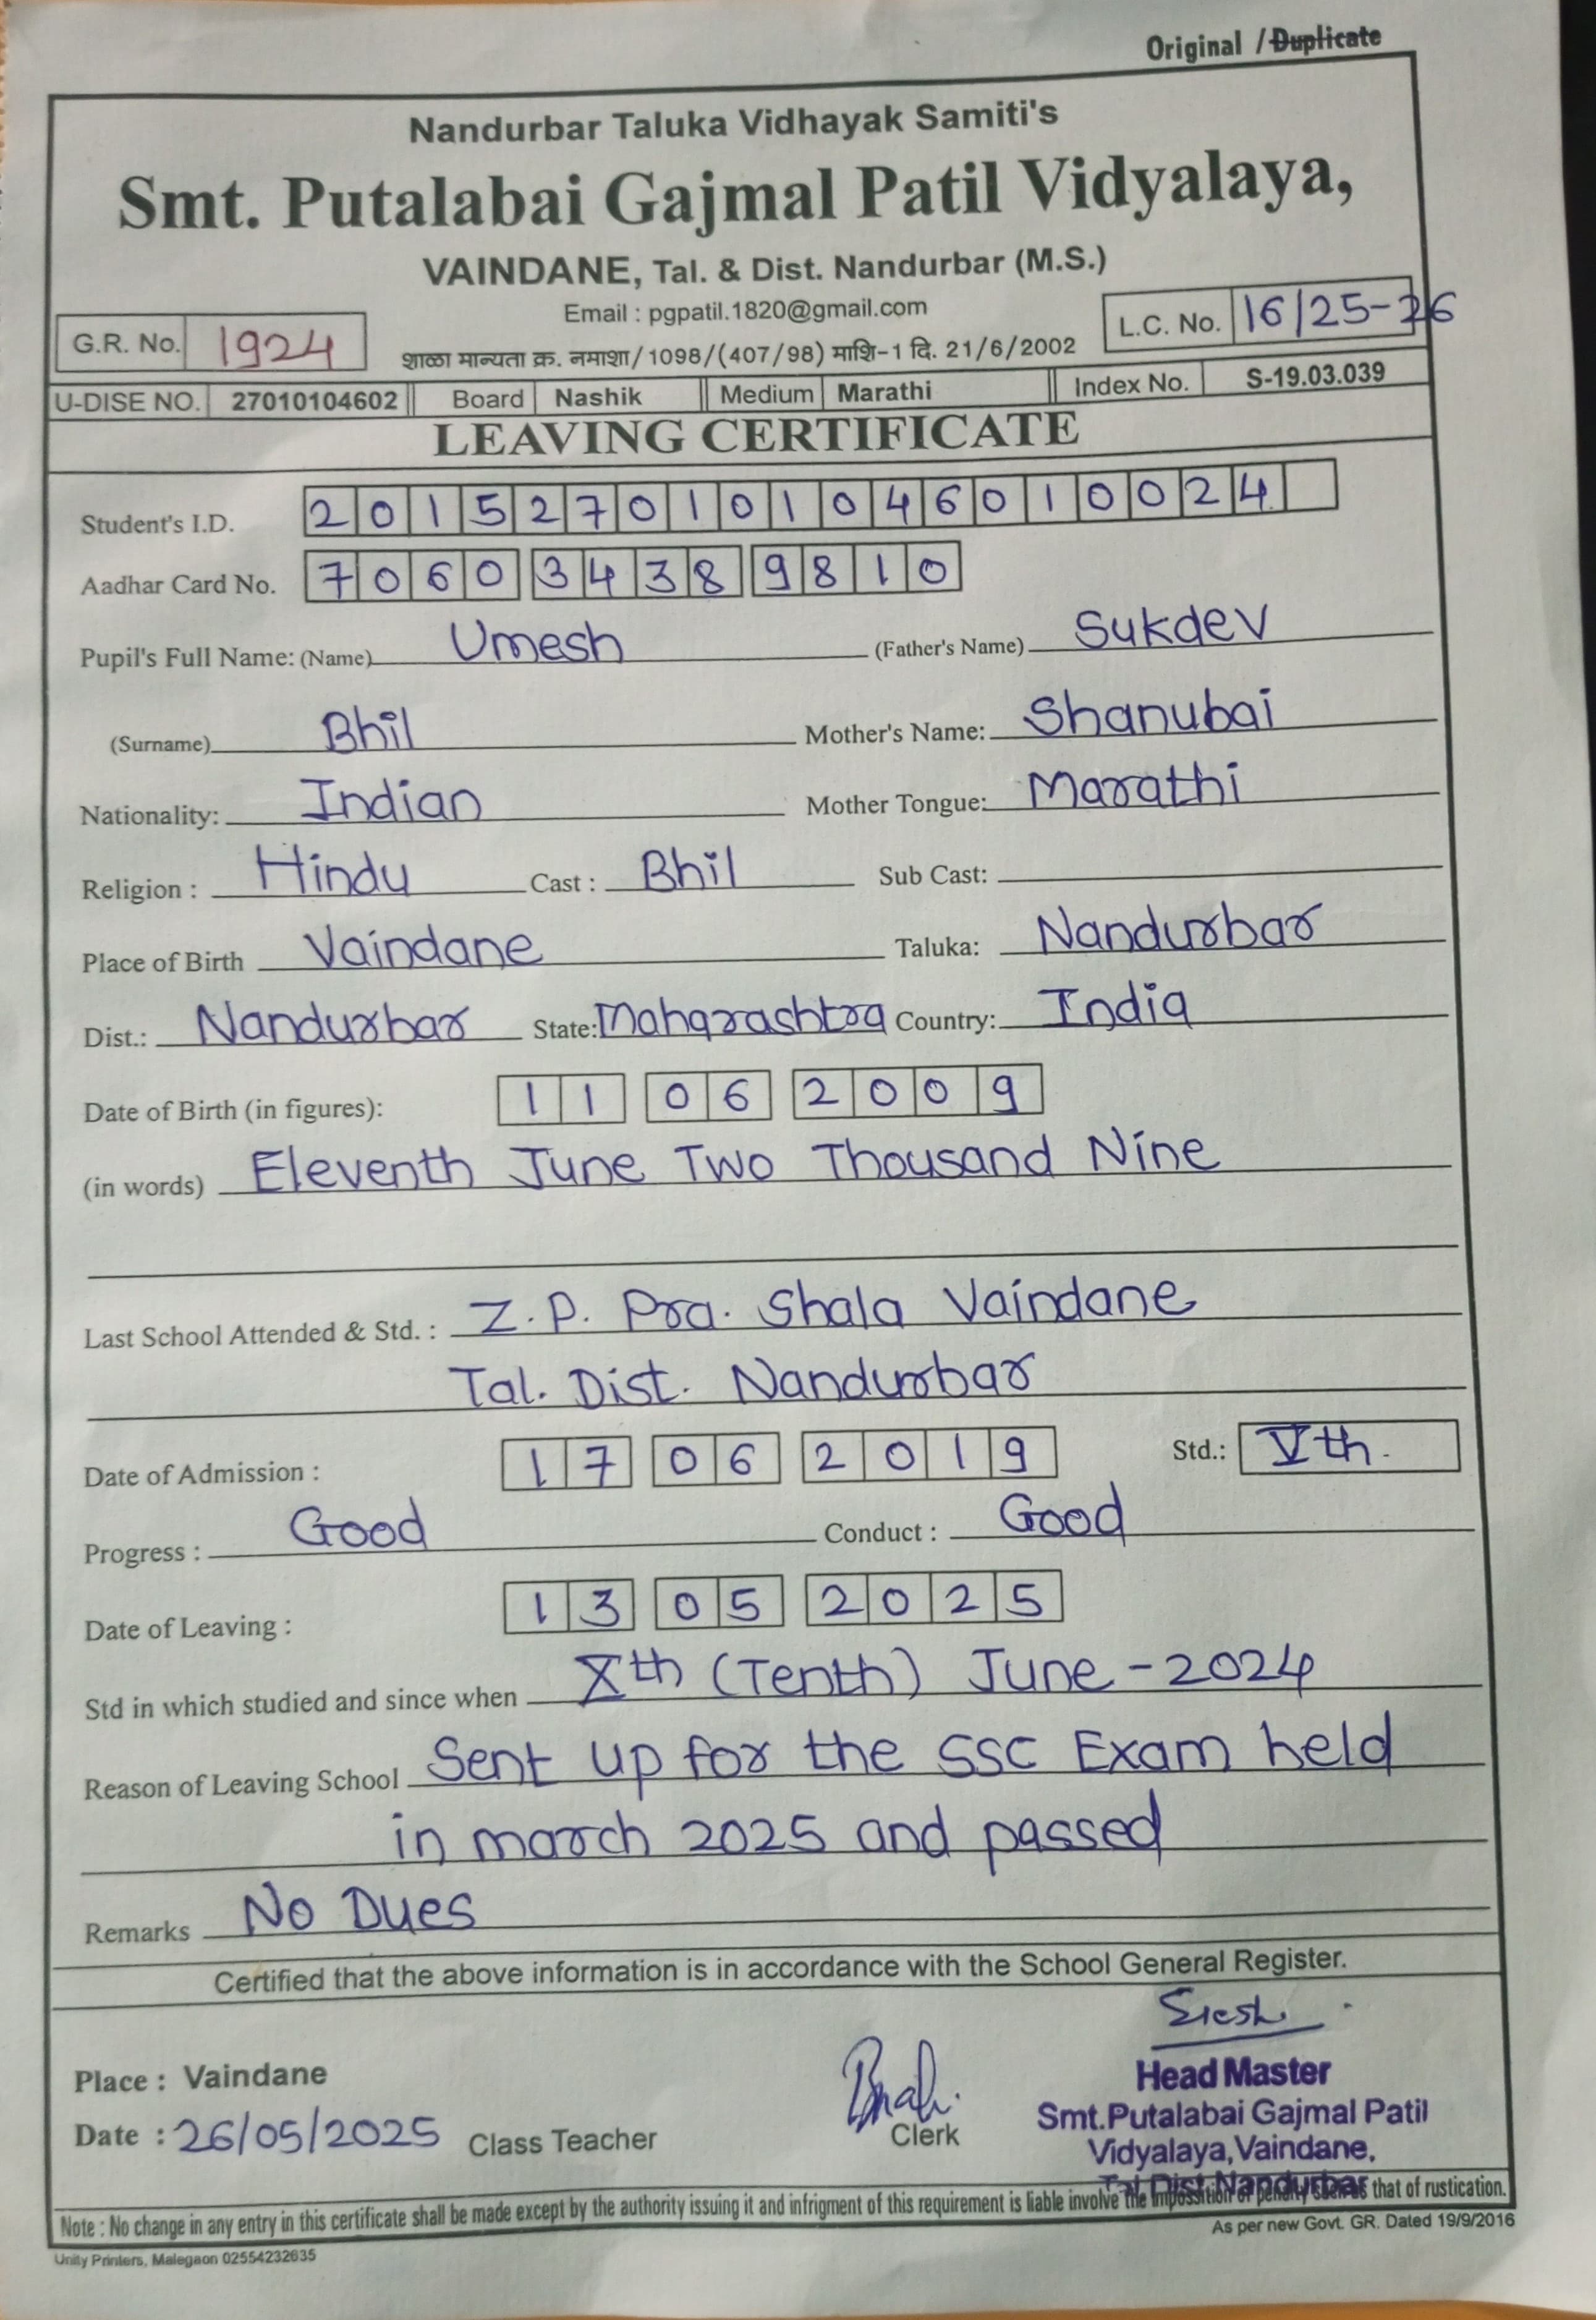 Original / Duplicate
Nandurbar Taluka Vidhayak Samiti's
Smt. Putalabai Gajmal Patil Vidyalaya,
VAINDANE, Tal. & Dist. Nandurbar (M.S.)
Email : pgpatil.1820@gmail.com
G.R. No. 1924
L.C. No. 16/25-26
शाळा मान्यता क्र. नमाशा/1098/(407/98) माशि-1 दि. 21/6/2002
U-DISE NO. 27010104602 Board Nashik Medium Marathi Index No. S-19.03.039
LEAVING CERTIFICATE
Student's I.D. 2015270101046010024
Aadhar Card No. 7060 3438 9810
Pupil's Full Name: (Name) Umesh (Father's Name) Sukdev
(Surname) Bhil Mother's Name: Shanubai
Nationality: Indian Mother Tongue: Marathi
Religion : Hindu Cast : Bhil Sub Cast:
Place of Birth Vaindane Taluka: Nandurbar
Dist.: Nandurbar State: Maharashtra Country: India
Date of Birth (in figures): 11 06 2009
(in words) Eleventh June Two Thousand Nine
Last School Attended & Std. : Z.P. Pra. Shala Vaindane
Tal. Dist. Nandurbar
Date of Admission : 17 06 2019 Std.: Vth.
Progress : Good Conduct : Good
Date of Leaving : 13 05 2025
Std in which studied and since when Xth (Tenth) June - 2024
Reason of Leaving School Sent up for the SSC Exam held
in march 2025 and passed
Remarks No Dues
Certified that the above information is in accordance with the School General Register.
Place : Vaindane
Date : 26/05/2025 Class Teacher Clerk
Head Master
Smt.Putalabai Gajmal Patil
Vidyalaya,Vaindane.
Tal.Dist.Nandurbar
Note : No change in any entry in this certificate shall be made except by the authority issuing it and infrigment of this requirement is liable involve the imposition of penalty that of rustication.
As per new Govt. GR. Dated 19/9/2016
Unity Printers, Malegaon 02554232635